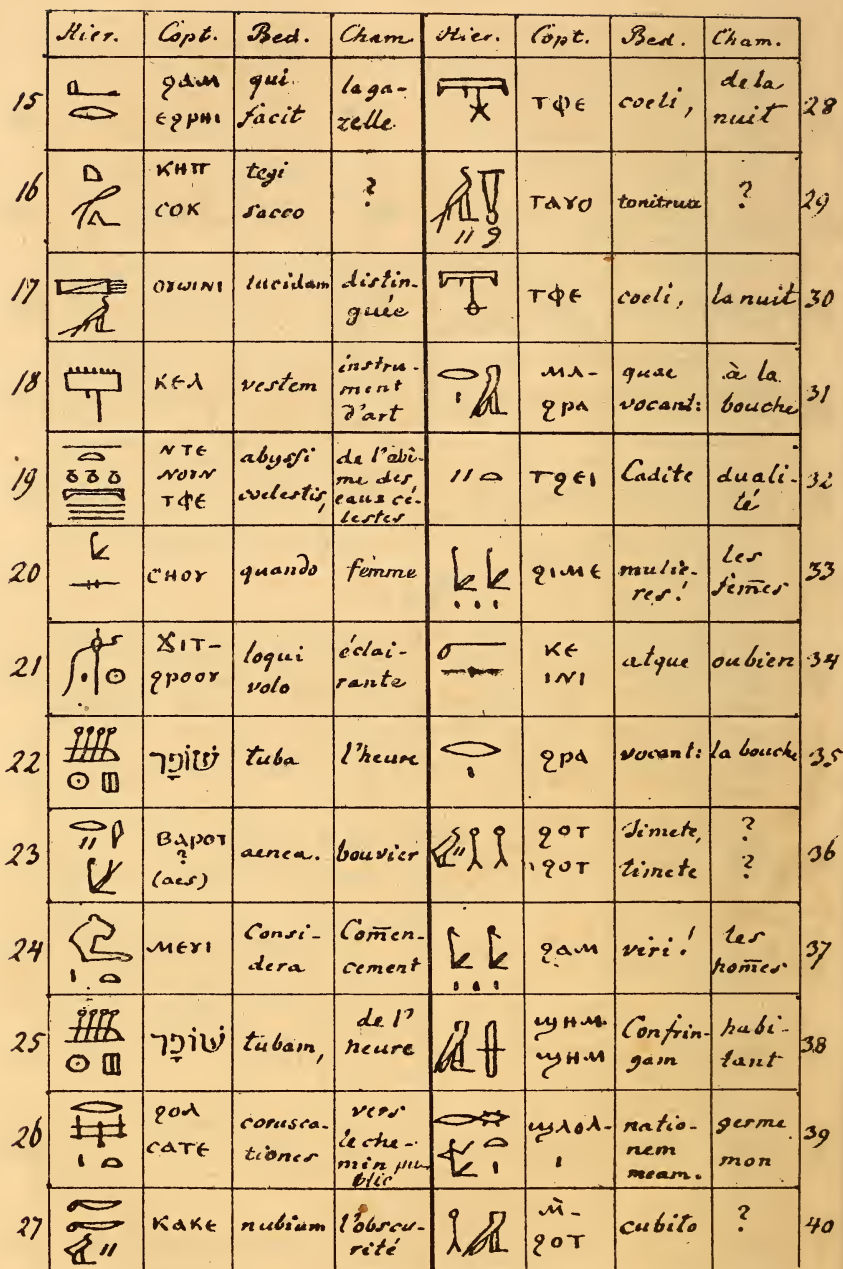 Hier. Copt. Bed. Cham. Hier. Copt. Bed. Cham.
15 ϩⲁⲙ ⲉϩⲣⲏⲓ qui facit la gazelle. ⲧⲫⲉ coeli, de la nuit 28
16 ⲕⲏⲡ ⲥⲟⲕ tegi sacco ? ⲧⲁⲩⲟ tonitrua ? 29
17 ⲟⲩⲱⲓⲛⲓ lucidam distin-guée ⲧⲫⲉ coeli, la nuit 30
18 ⲕⲉⲗ vestem instru-ment d'art ⲙⲁ-ϩⲣⲁ quae vocant: à la bouche 31
19 ⲛⲧⲉ ⲛⲟⲩⲛ ⲧⲫⲉ abyssi coelestis, de l'abî-me des eaux cé-lestes ⲧϩⲉⲓ Cadite duali-té 32
20 ⲥⲏⲟⲩ quando femme ϩⲓⲙⲉ mulie-res! les fem̄es 33
21 ϫⲓⲧ-ϩⲣⲟⲟⲩ loqui volo éclai-rante ⲕⲉ ⲓⲛⲓ atque oubien 34
22 שׁוֹפָר tuba l'heure ϩⲣⲁ vocant: la bouche 35
23 ⲃⲁⲣⲟⲧ ? (aes) aenea. bouvier ϩⲟⲧ ϩⲟⲧ timete, timete ? ? 36
24 ⲙⲉⲩⲓ Consi-dera Com̄en-cement ϩⲁⲙ viri! les hom̄es 37
25 שׁוֹפָר tubam, de l'heure ϣⲏⲙ ϣⲏⲙ Confrin-gam habi-tant 38
26 ϩⲟⲗ ⲥⲁⲧⲉ corusca-tiones vers le che-min pu-blic ϣⲗⲟⲗ-ⲓ natio-nem meam. germe mon 39
27 ⲕⲁⲕⲉ nubium l'obscu-rité ⲙ̄-ϩⲟⲧ cubito ? 40